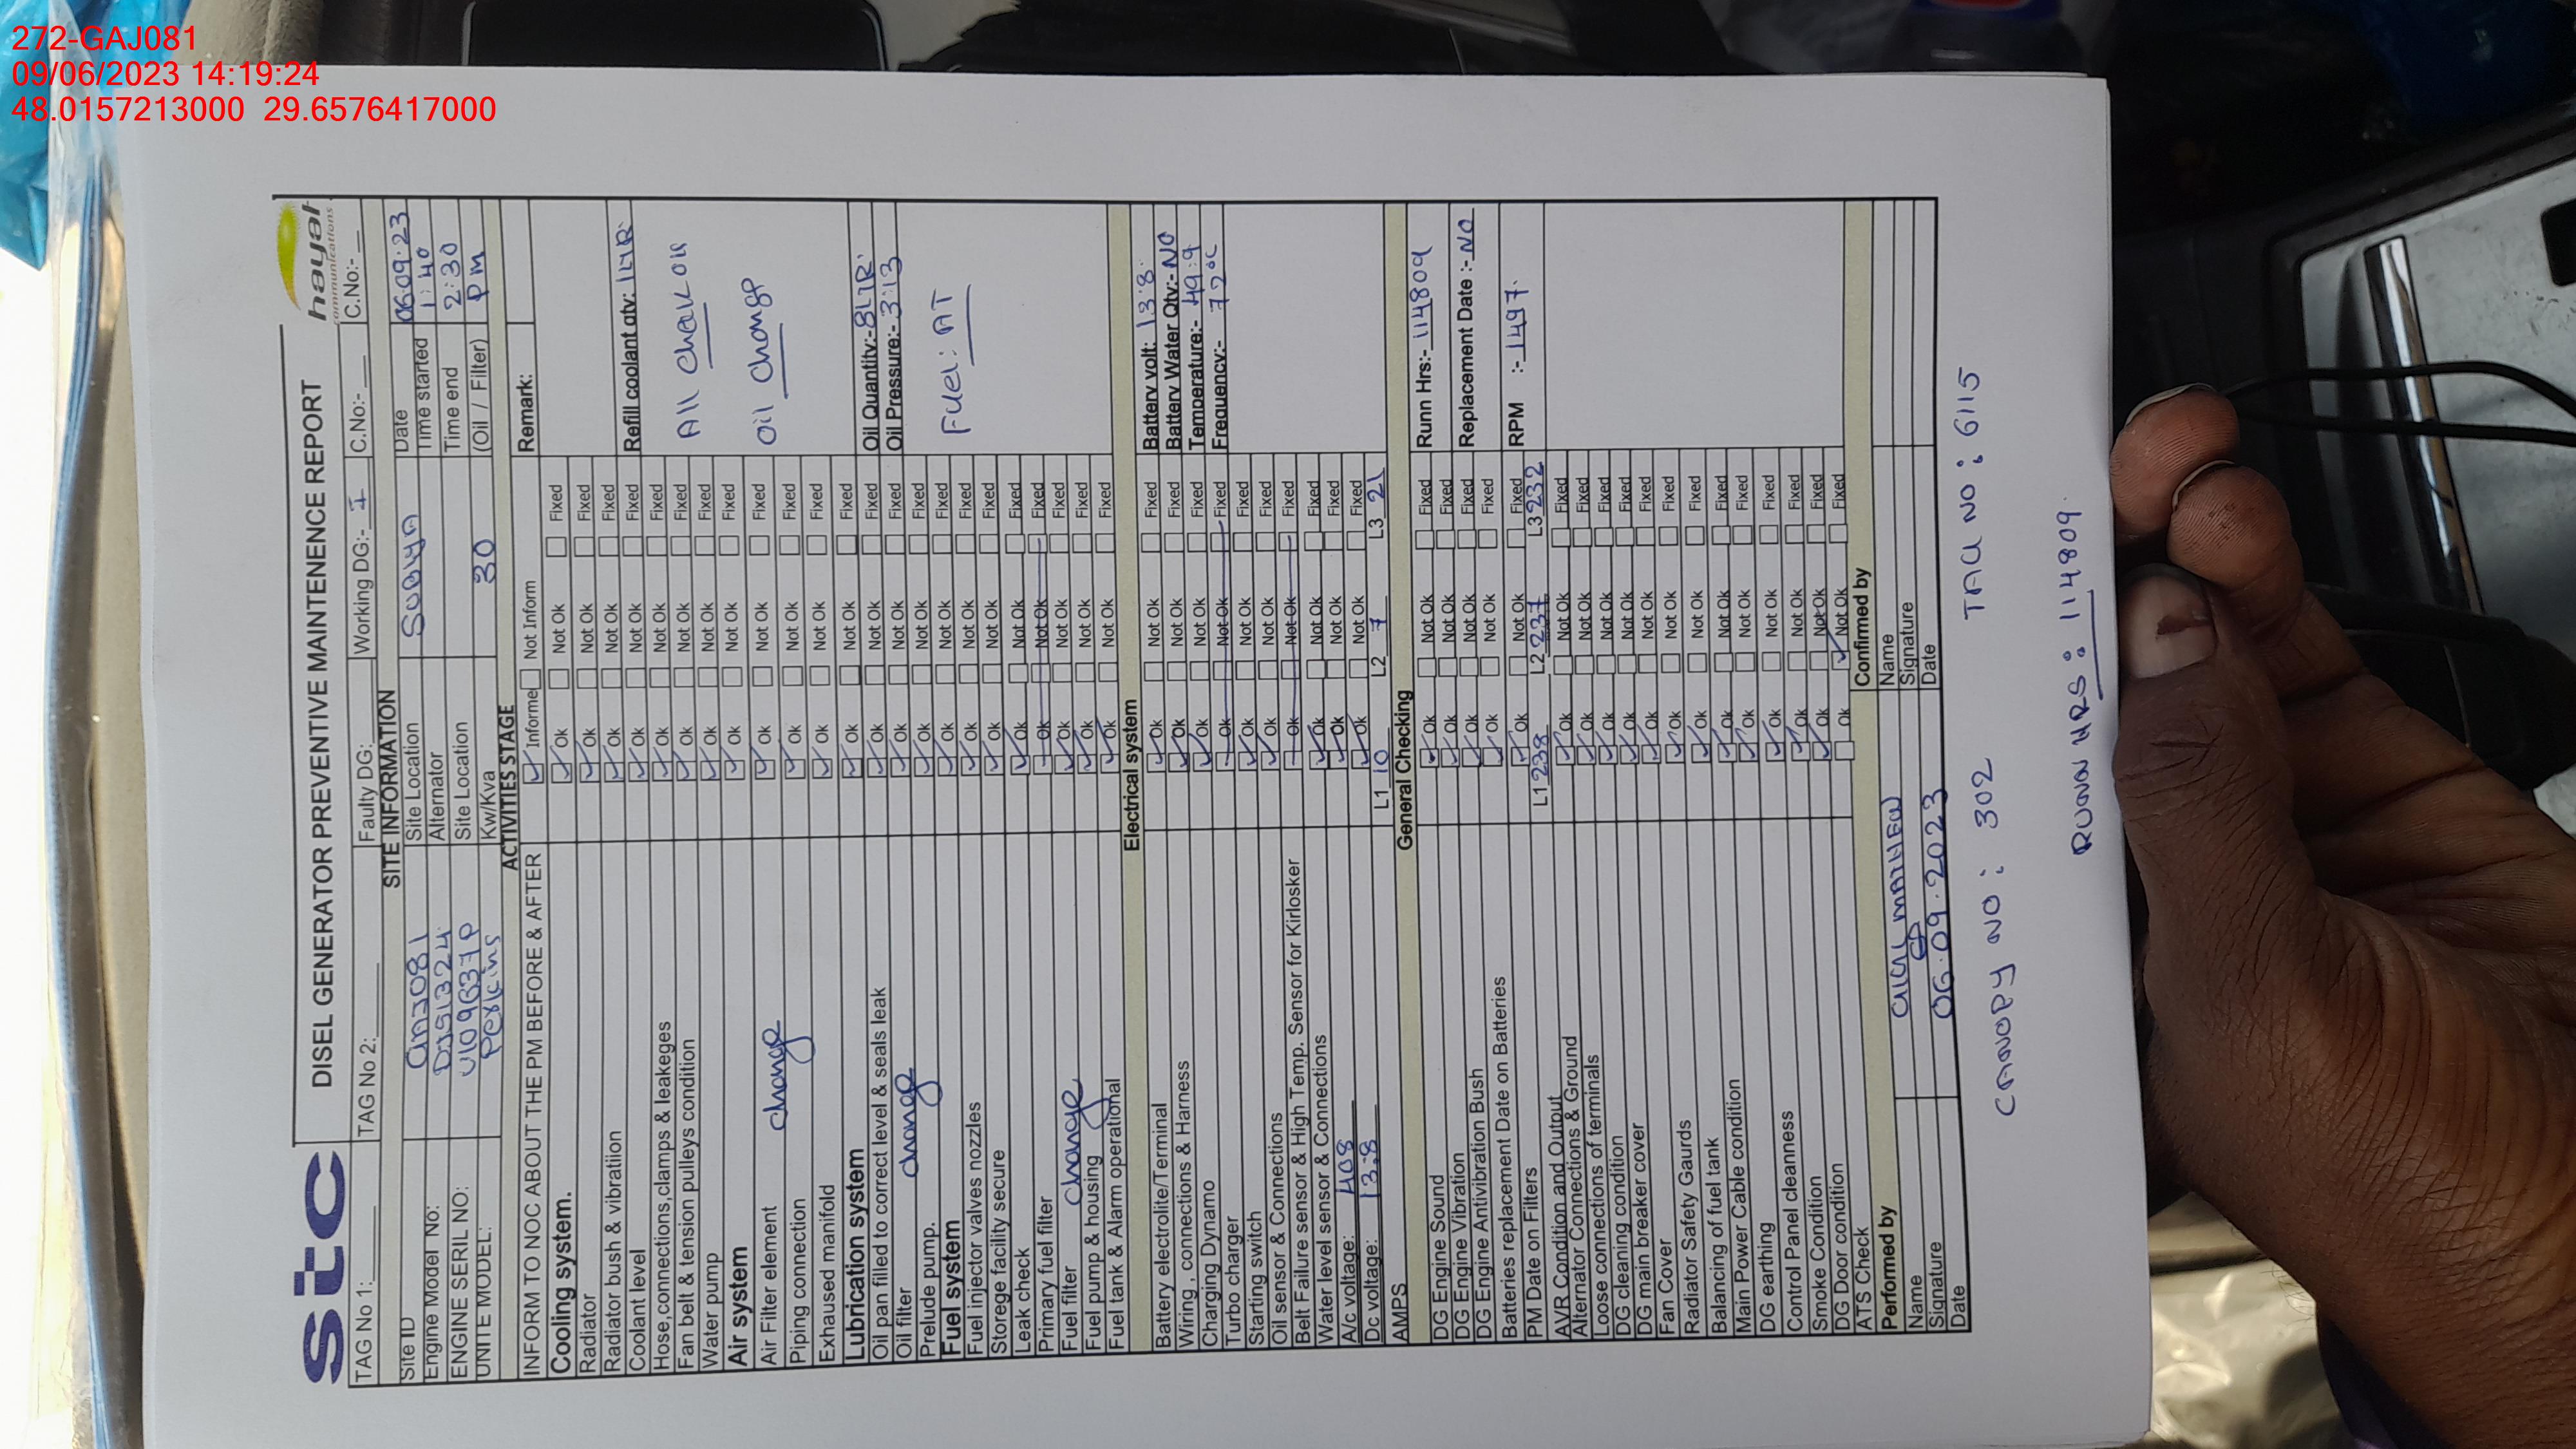 272-GAJ081
09/06/2023 14:19:24
48.0157213000 29.6576417000
stc
DISEL GENERATOR PREVENTIVE MAINTENENCE REPORT
hayat
communications
TAG No 1:____ TAG No 2:____ Faulty DG:____ Working DG:- I C.No:-__ C.No:-__
SITE INFORMATION
Site ID GAJ081 Site Location SUBIYA Date 06.09.23
Engine Model No: DJ51324 Alternator Time started 1:40
ENGINE SERIL NO: U109637P Site Location Time end 2:30
UNITE MODEL: Perkins Kw/Kva 30 (Oil / Filter) PM
ACTIVITIES STAGE
INFORM TO NOC ABOUT THE PM BEFORE & AFTER ☑ Informe ☐ Not Inform Remark:
Cooling system. ☑ Ok ☐ Not Ok ☐ Fixed
Radiator ☑ Ok ☐ Not Ok ☐ Fixed
Radiator bush & vibratiion ☑ Ok ☐ Not Ok ☐ Fixed
Coolant level ☑ Ok ☐ Not Ok ☐ Fixed Refill coolant qty: 1LTR.
Hose,connections,clamps & leakeges ☑ Ok ☐ Not Ok ☐ Fixed
Fan belt & tension pulleys condition ☑ Ok ☐ Not Ok ☐ Fixed All Check ok
Water pump ☑ Ok ☐ Not Ok ☐ Fixed
Air system ☑ Ok ☐ Not Ok ☐ Fixed
Air Filter element change ☑ Ok ☐ Not Ok ☐ Fixed Oil Change
Piping connection ☑ Ok ☐ Not Ok ☐ Fixed
Exhaused manifold ☑ Ok ☐ Not Ok ☐ Fixed
Lubrication system ☑ Ok ☐ Not Ok ☐ Fixed
Oil pan filled to correct level & seals leak ☑ Ok ☐ Not Ok ☐ Fixed Oil Quantity:-8LTR.
Oil filter change ☑ Ok ☐ Not Ok ☐ Fixed Oil Pressure:- 3.13
Prelude pump. ☑ Ok ☐ Not Ok ☐ Fixed
Fuel system ☑ Ok ☐ Not Ok ☐ Fixed Fuel: AT
Fuel injector valves nozzles ☑ Ok ☐ Not Ok ☐ Fixed
Storege facility secure ☑ Ok ☐ Not Ok ☐ Fixed
Leak check ☑ Ok ☐ Not Ok ☐ Fixed
Primary fuel filter ☐ Ok ☐ Not Ok ☐ Fixed
Fuel filter change ☑ Ok ☐ Not Ok ☐ Fixed
Fuel pump & housing ☑ Ok ☐ Not Ok ☐ Fixed
Fuel tank & Alarm operational ☑ Ok ☐ Not Ok ☐ Fixed
Electrical system
Battery electrolite/Terminal ☑ Ok ☐ Not Ok ☐ Fixed Battery volt: 13.8.
Wiring , connections & Harness ☑ Ok ☐ Not Ok ☐ Fixed Battery Water Qty:- NO
Charging Dynamo ☑ Ok ☐ Not Ok ☐ Fixed Temperature:- 49.9
Turbo charger ☐ Ok ☐ Not Ok ☐ Fixed Frequency:- 72°C
Starting switch ☑ Ok ☐ Not Ok ☐ Fixed
Oil sensor & Connections ☑ Ok ☐ Not Ok ☐ Fixed
Belt Failure sensor & High Temp. Sensor for Kirlosker ☐ Ok ☐ Not Ok ☐ Fixed
Water level sensor & Connections ☑ Ok ☐ Not Ok ☐ Fixed
A/c voltage: 408 ☑ Ok ☐ Not Ok ☐ Fixed
Dc voltage: 13.8 ☑ Ok ☐ Not Ok ☐ Fixed
AMPS L1 10 L2 7 L3 21
General Checking
DG Engine Sound ☑ Ok ☐ Not Ok ☐ Fixed Runn Hrs:- 114809
DG Engine Vibration ☑ Ok ☐ Not Ok ☐ Fixed
DG Engine Antivibration Bush ☑ Ok ☐ Not Ok ☐ Fixed Replacement Date :- NO
Batteries replacement Date on Batteries ☑ Ok ☐ Not Ok ☐ Fixed
PM Date on Filters ☑ Ok ☐ Not Ok ☐ Fixed RPM :- 1497.
AVR Condition and Output L1 238 L2 237 L3 232
Alternator Connections & Ground ☑ Ok ☐ Not Ok ☐ Fixed
Loose connections of terminals ☑ Ok ☐ Not Ok ☐ Fixed
DG cleaning condition ☑ Ok ☐ Not Ok ☐ Fixed
DG main breaker cover ☑ Ok ☐ Not Ok ☐ Fixed
Fan Cover ☑ Ok ☐ Not Ok ☐ Fixed
Radiator Safety Gaurds ☑ Ok ☐ Not Ok ☐ Fixed
Balancing of fuel tank ☑ Ok ☐ Not Ok ☐ Fixed
Main Power Cable condition ☑ Ok ☐ Not Ok ☐ Fixed
DG earthing ☑ Ok ☐ Not Ok ☐ Fixed
Control Panel cleanness ☑ Ok ☐ Not Ok ☐ Fixed
Smoke Condition ☑ Ok ☐ Not Ok ☐ Fixed
DG Door condition ☑ Ok ☐ Not Ok ☐ Fixed
ATS Check ☐ Ok ☑ Not Ok ☐ Fixed
Performed by Confirmed by
Name Name
Signature Signature
Date 06.09.2023 Date
CANOPY NO: 302 TAG NO: 6115
RUNN HRS: 114809.